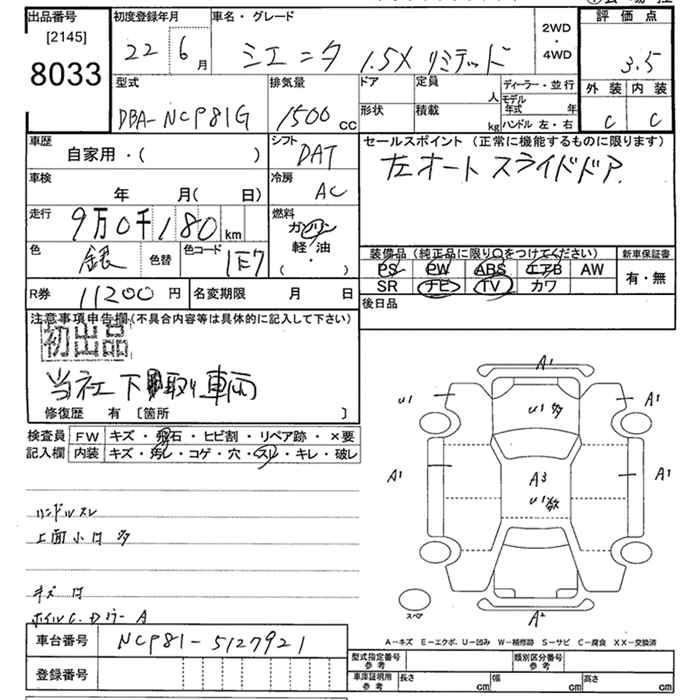 出品番号 初度登録年月 車名・グレード 2WD・4WD 評価点
[2145]
8033 22 6月 シエンタ 1.5X リミテッド 3.5
外装 内装
C C
型式 排気量 ドア 定員 人 ディーラー・並行
DBA-NCP81G 1500 cc 形状 積載 kg モデル年式 年
ハンドル 左・右
車歴 シフト セールスポイント (正常に機能するものに限ります)
自家用・( ) DAT 左オートスライドドア
車検 年 月( 日) 冷房 AC
走行 9万0千180 km 燃料 ガソリン
軽・油
( ・ )
色 銀 色替 色コード 1E7
装備品 (純正品に限り○をつけてください) 新車保証書
PS PW ABS エアB AW 有・無
SR ナビ TV カワ
R券 11200円 名変期限 月 日 後日品
注意事項申告欄(不具合内容等は具体的に記入して下さい)
初出品
当社下取り車両
修復歴 有 [箇所 ]
検査員 FW キズ・飛石・ヒビ割・リペア跡・×要
記入欄 内装 キズ・汚レ・コゲ・穴・スレ・キレ・破レ
ハンドルスレ
上面小キズ多
A1
U1 U1多 A1
A1 A3 A1
U1
スペア A2
A-キズ E-エクボ U-凹み W-補修跡 S-サビ C-腐食 XX-交換済
車台番号 NCP81-5127921
登録番号
型式指定番号 参考 類別区分番号 参考
車庫証明用 参考 長さ cm 幅 cm 高さ cm